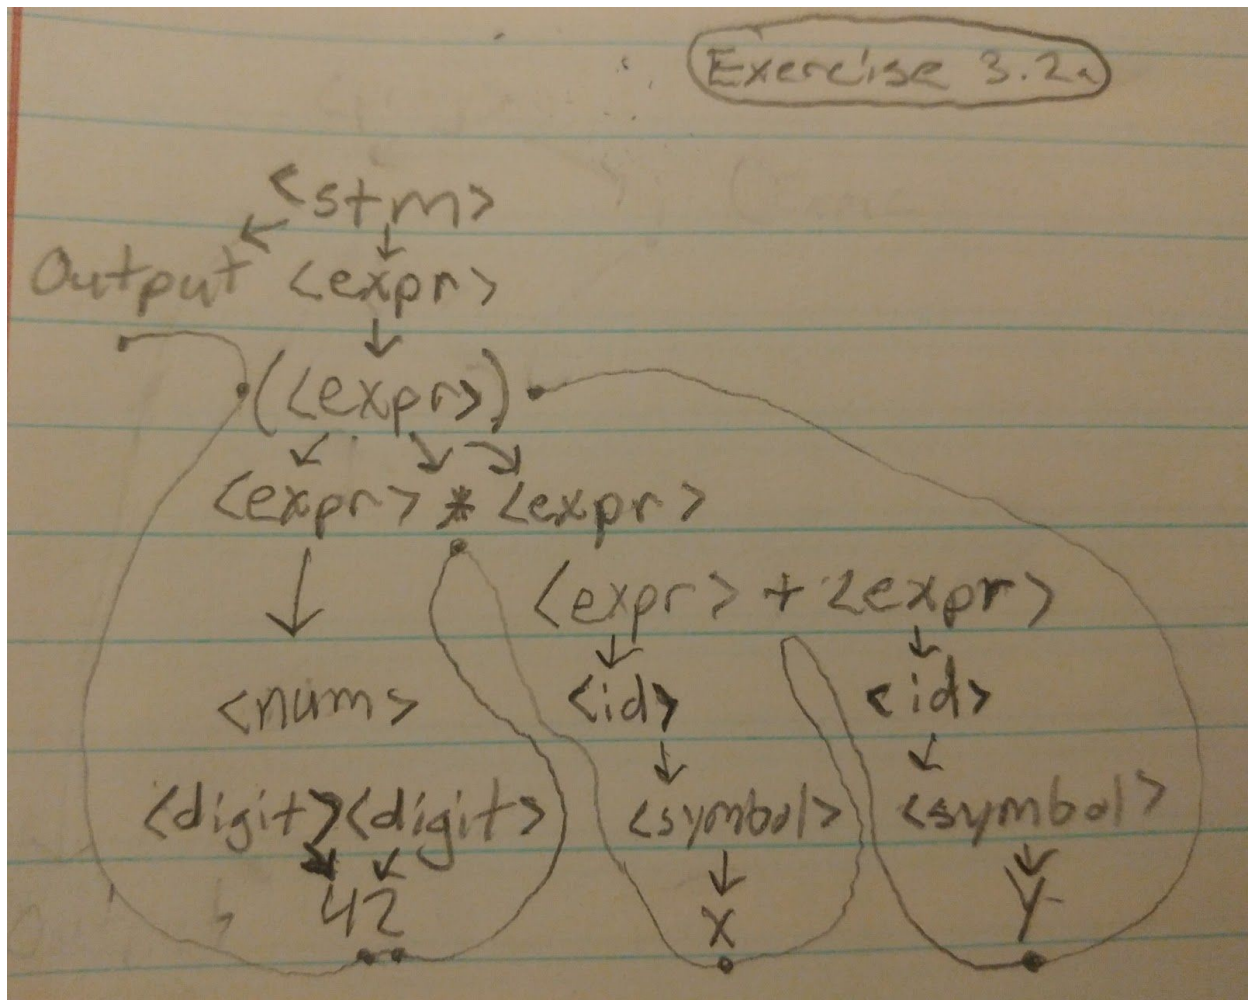 Exercise 3.2a
<stm>
Output <expr>
(<expr>)
<expr> * <expr>
<expr> + <expr>
<num> <id> <id>
<digit><digit> <symbol> <symbol>
42 x y